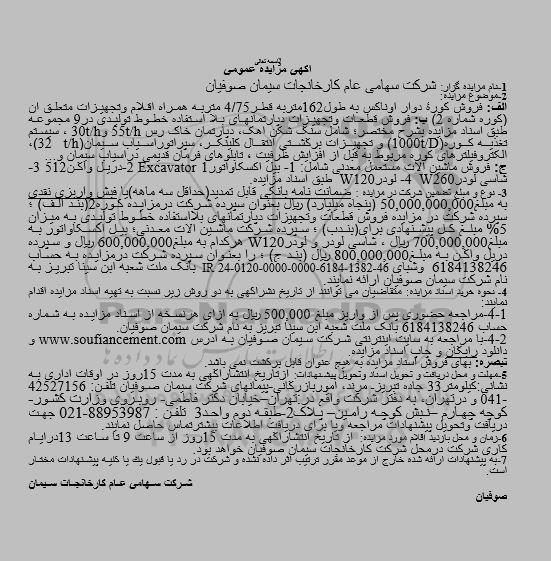 بسمه تعالی
آگهی مزایده عمومی
1-نام مزایده گزار: شرکت سهامی عام کارخانجات سیمان صوفیان
2-موضوع مزایده:
الف: فروش کورۀ دوار اوناکس به طول162متربه قطر4/75 متربه همراه اقلام وتجهیزات متعلق ان
(کوره شماره 2) ب: فروش قطعات وتجهیزات دپارتمانهای بلا استفاده خطوط تولیدی در9 مجموعه
طبق اسناد مزایده بشرح مختصر: شامل سنگ شکن اهک، دپارتمان خاک رس 55t/h و30t/h ، سیستم
تغذیه کوره(1000t/D) و تجهیزات برگشتی انتقال کلینکر، سپراتوراسیاب سیمان(32t/h)،
الکتروفیلترهای کوره مربوط به قبل از افزایش ظرفیت ، تابلوهای فرمان قدیمی دراسیاب سیمان و...
ج: فروش ماشین الات مستعمل معدنی شامل: 1- بیل اکسکاواتورExcavator 1 2-دریل واگن512 3-
شاسی لودرW260 4- لودرW120 طبق اسناد مزایده
3- نوع و مبلغ تضمین شرکت در مزایده : ضمانت نامه بانکی قابل تمدید(حداقل سه ماهه)یا فیش واریزی نقدی
به مبلغ50,000,000,000 (پنجاه میلیارد) ریال بعنوان سپرده شرکت درمزایده کوره2(بند الف) ؛
سپرده شرکت در مزایده فروش قطعات وتجهیزات دپارتمانهای بلااستفاده خطوط تولیدی به میزان
5% مبلغ کل پیشنهادی برای(بندب) ؛ سپرده شرکت ماشین الات معدنی؛ بیل اکسکاواتور به
مبلغ700,000,000 ریال ، شاسی لودر و لودرW120 هرکدام به مبلغ600,000,000 ریال و سپرده
دریل واگن به مبلغ800,000,000 ریال (بند ج) ؛ را بعنوان سپرده شرکت درمزایده به حساب
6184138246 وشبای IR 24-0120-0000-0000-6184-1382-46 بانک ملت شعبه ابن سینا تبریز به
نام شرکت سیمان صوفیان ارائه نمایند.
4- نحوه خرید اسناد مزایده: متقاضیان می توانند از تاریخ نشراگهی به دو روش زیر نسبت به تهیه اسناد مزایده اقدام
نمایند:
4-1-مراجعه حضوری پس از واریز مبلغ 500,000 ریال به ازای هرنسخه از اسناد مزایده به شماره
حساب 6184138246 بانک ملت شعبه ابن سینا تبریز به نام شرکت سیمان صوفیان.
4-2-با مراجعه به سایت اینترنتی شرکت سیمان صوفیان به ادرس www.soufiancement.com و
دانلود رایگان و چاپ اسناد مزایده
تبصره: بهای فروش اسناد مزایده به هیچ عنوان قابل برگشت نمی باشد.
5-مهلت و محل دریافت و تحویل اسناد وتحویل پیشنهادات: ازتاریخ انتشاراگهی به مدت 15روز در اوقات اداری به
نشانی:کیلومتر33 جاده تبریز- مرند، اموربازرگانی-پیمانهای شرکت سیمان صوفیان تلفن: 42527156
-041 و درتهران، به دفتر شرکت واقع در تهران–خیابان دکتر فاطمی- روبروی وزارت کشور-
کوچه چهارم –نبش کوچه رامین– پلاک2-طبقه دوم واحد3 تلفن : 88953987-021 جهت
دریافت وتحویل پیشنهادات مراجعه ویا برای دریافت اطلاعات بیشترتماس حاصل نمایند.
6-زمان و محل بازدید اقلام مورد مزایده: از تاریخ انتشاراگهی به مدت 15روز از ساعت 9 تا ساعت 13درایام
کاری شرکت درمحل شرکت کارخانجات سیمان صوفیان خواهد بود.
7-به پیشنهادات ارائه شده خارج از موعد مقرر ترتیب اثر داده نشده و شرکت در رد یا قبول یك یا کلیه پیشنهادات مختار
است.
شرکت سهامی عام کارخانجات سیمان
صوفیان